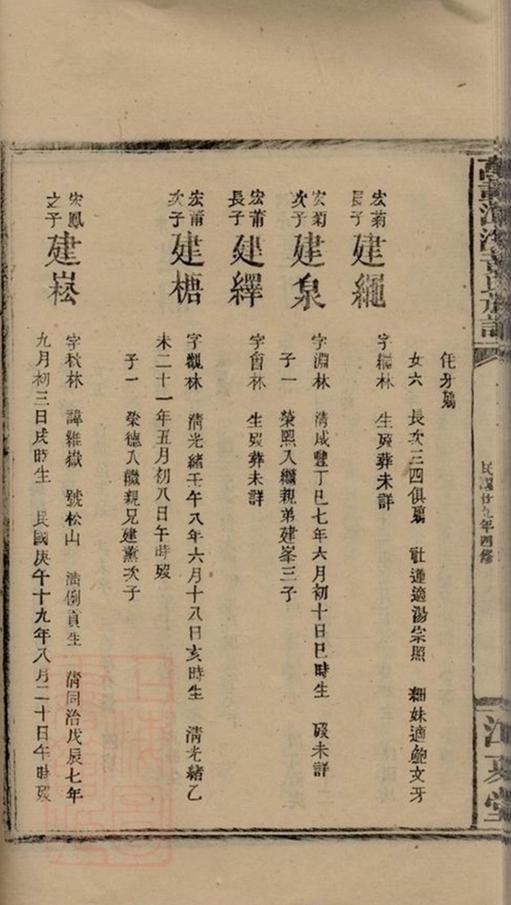 黃氏族譜
民國廿九年四修
江夏堂
任牙鷎
女六 長次三四俱殤 社蓮適湯宗照 細妹適鮑文牙
宏菊長子 建繩 字繩林 生歿葬未詳
宏菊次子 建泉 字淵林 清咸豐丁巳七年六月初十日巳時生 歿未詳
子一 榮熙入繼親弟建峯三子
宏莆長子 建繹 字會林 生歿葬未詳
宏莆次子 建榶 字觀林 清光緒壬午八年六月十八日亥時生 清光緒乙
未二十一年五月初八日午時歿
子一 榮德入繼親兄建黨次子
宏鳳之子 建崧 字秋林 諱維嶽 號松山 清例貢生 清同治戊辰七年
九月初三日戌時生 民國庚午十九年八月二十日午時歿